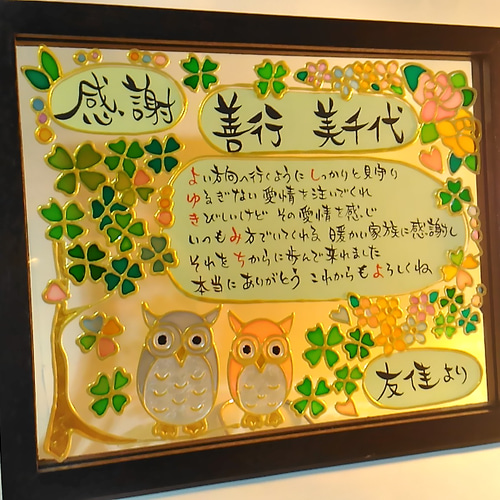 感謝
善行 美千代
よい方向へ行くように しっかりと見守り
ゆるぎない 愛情を注いでくれ
きびしいけど その愛情を感じ
いつもみ方でいてくれる 暖かい家族に感謝し
それをちからに歩んで来れました
本当に ありがとう これからもよろしくね
友佳より